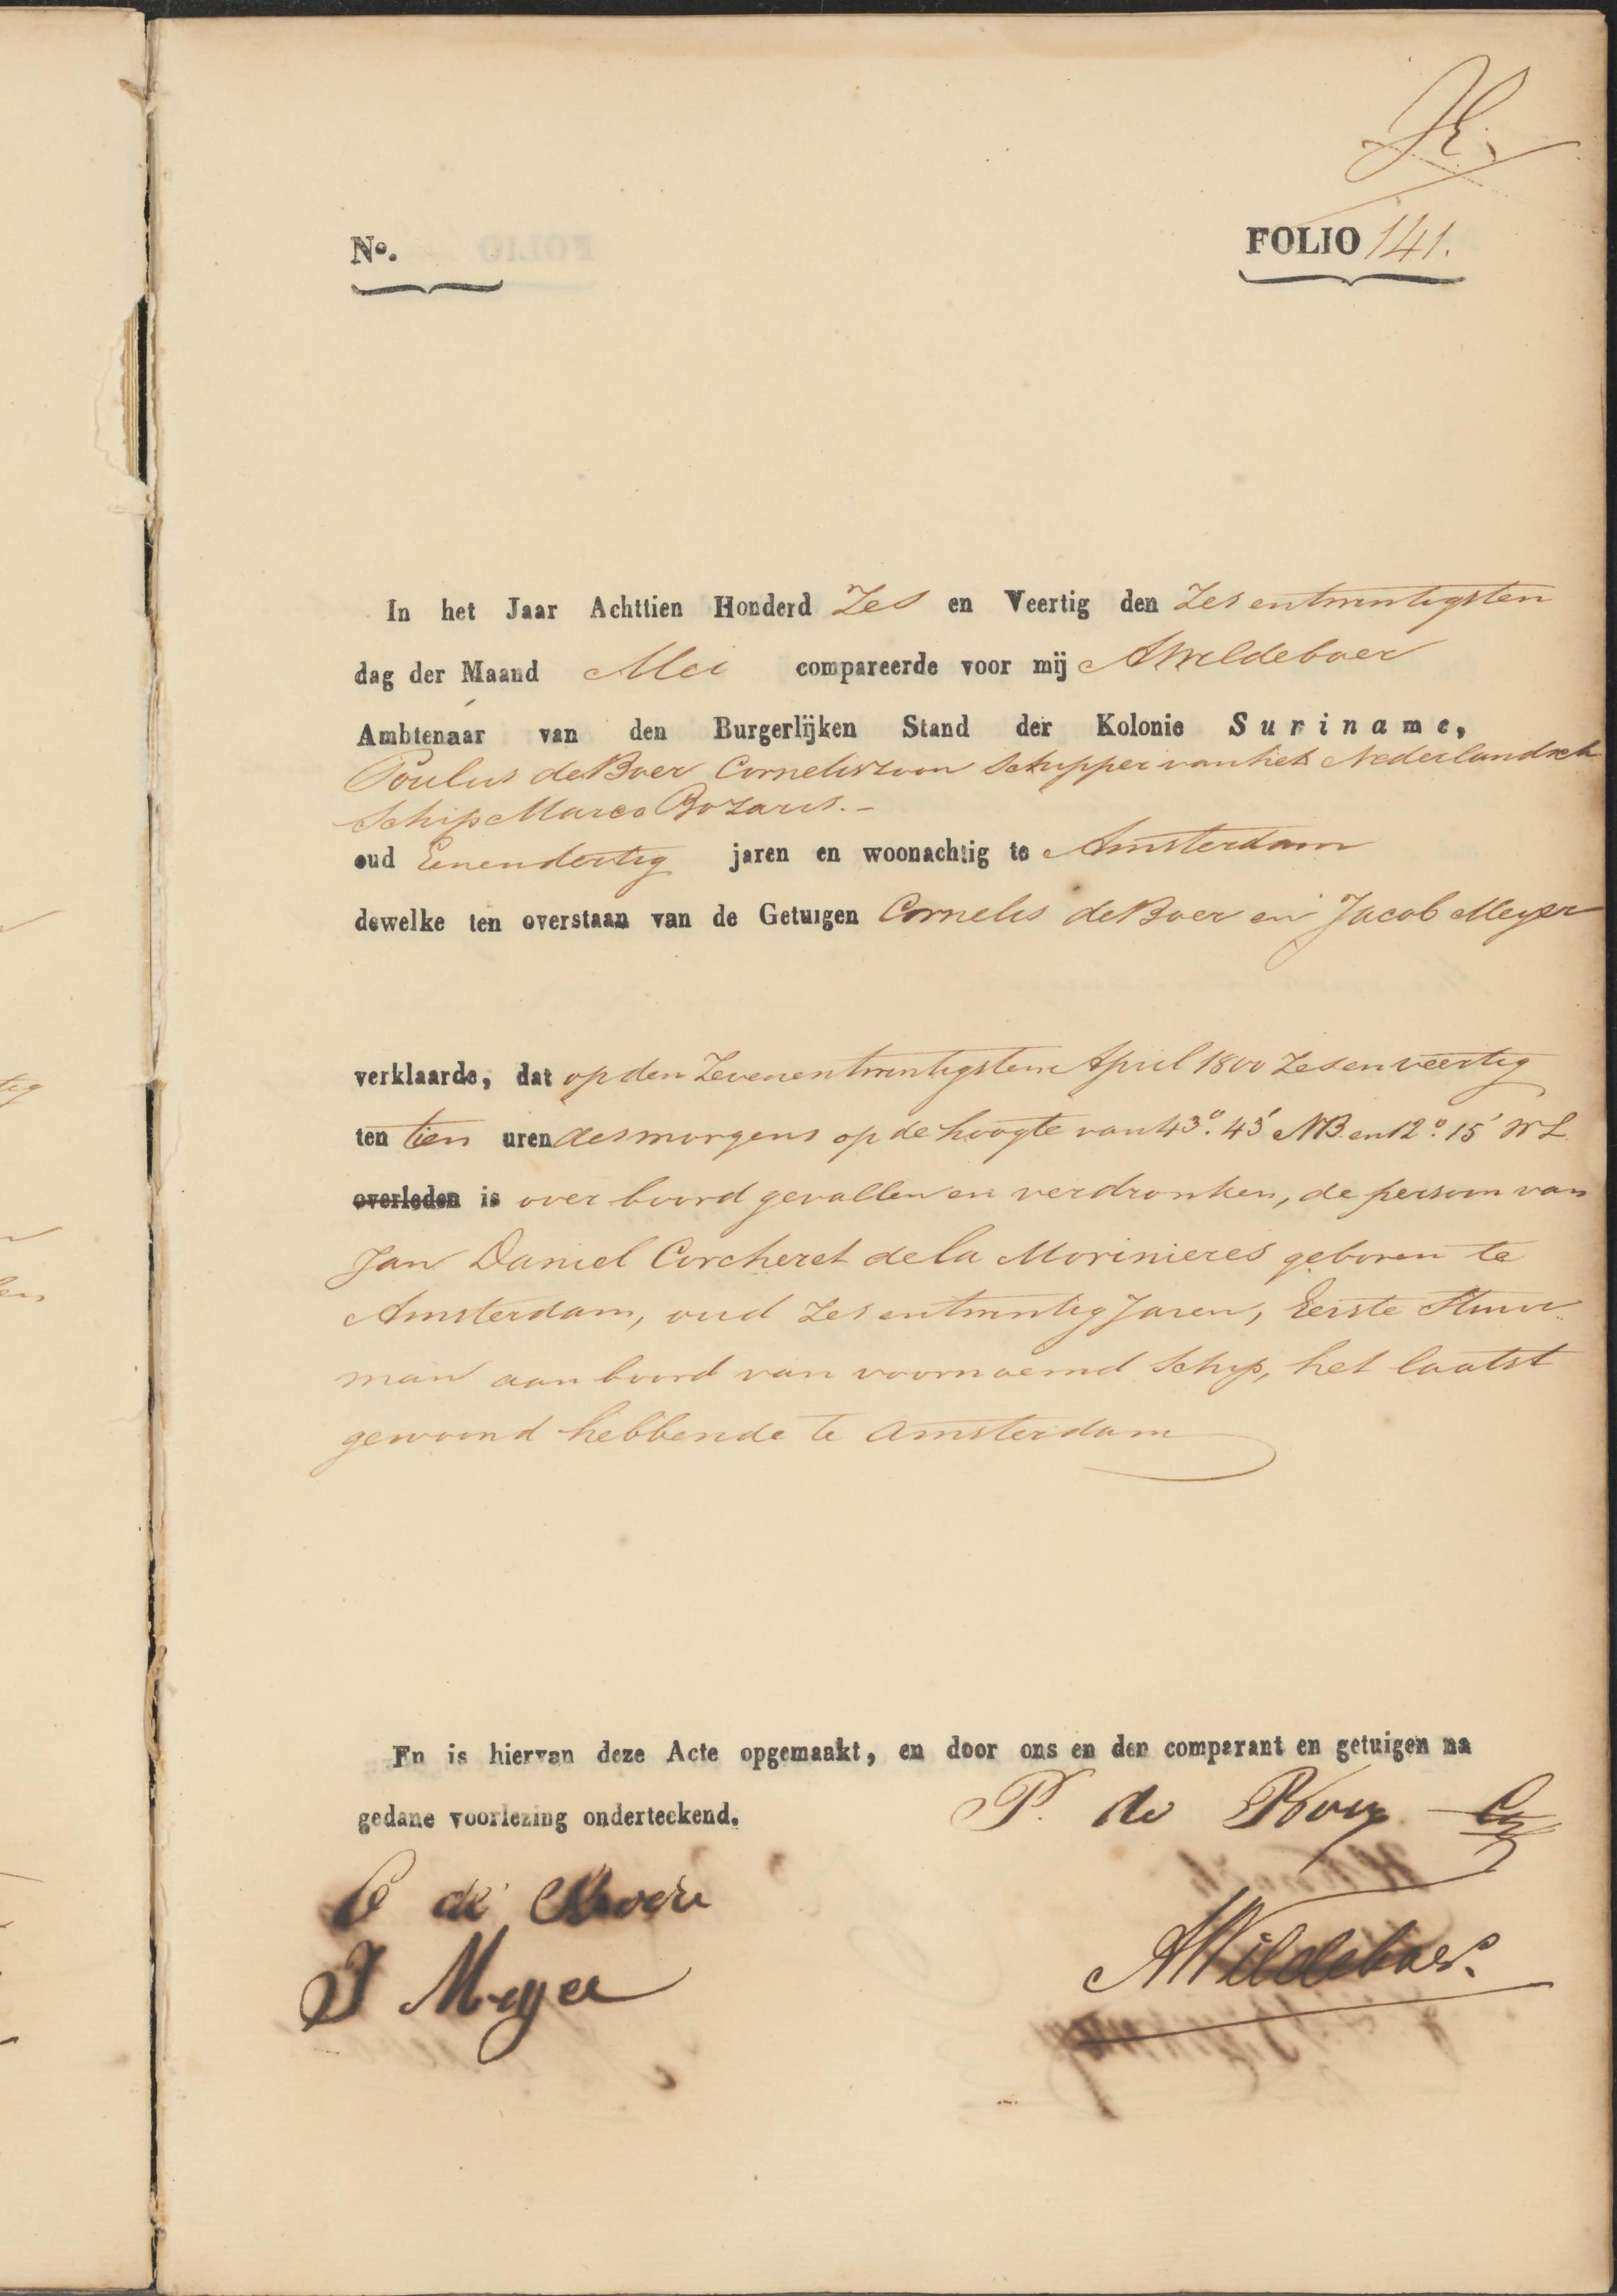 No.
FOLIO 141.
In het Jaar Achttien Honderd Zes en Veertig den Zesentwintigsten
dag der Maand Mei compareerde voor mij AWildeboer
Ambtenaar van den Burgerlijken Stand der Kolonie Suriname,
Poulus de Boer Corneliszoon Schipper van het Nederlandsch
Schip Marco Bozaris.-
oud Eenendertig jaren en woonachtig te Amsterdam
dewelke ten overstaan van de Getuigen Cornelis de Boer en Jacob Meyer
verklaarde, dat op den Zevenentwintigsten April 1800 Zesenveertig
ten tien uren des morgens op de hoogte van 43°. 45' NB. en 12°. 15' WL
overleden is over boord gevallen en verdronken, de persoon van
Jan Daniel Corcheret de la Morinieres geboren te
Amsterdam, oud zesentwintig Jaren, Eerste Stuur
man aan boord van voornoemd Schip, het laatst
gewoond hebbende te Amsterdam
En is hiervan deze Acte opgemaakt, en door ons en den comparant en getuigen na
gedane voorlezing onderteekend.
P. de Boer Cz
C de Boer
J Meyer
AWildeboer.